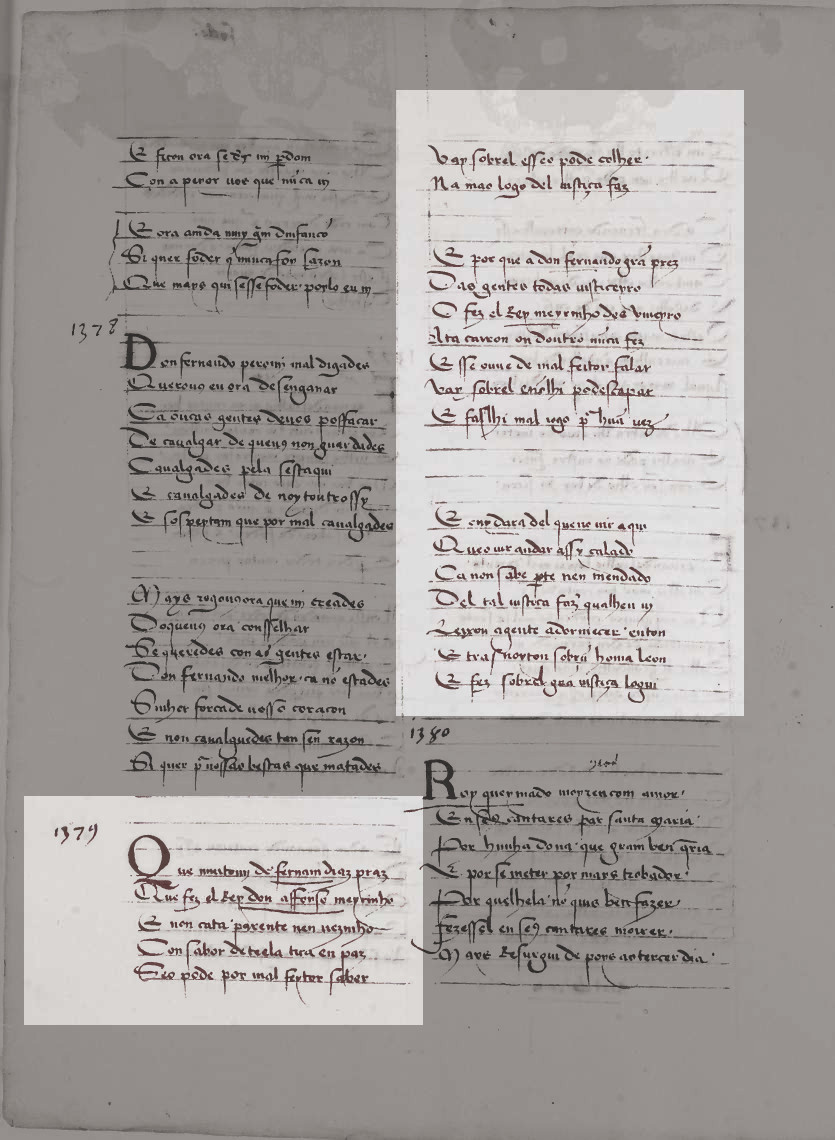 E ficou ora se d's mi pdom
Con a peyor uos que nūca ui
E ora ainda muy
Si quer foder q nūca foy sazon
Que mays qui sesse foder. poylo eu ui
1378
Don fernando pero mi mal digades
Querouꝯ eu ora desenganar
Ca oūcas gentes deuos possacar
De caualgar de queuꝯ non guardades
Caualgades pela sestaqui
E caualgades de noytoutrossy
E sospeytam que por mal caualgades
Mays rogouꝯ ora que mi creades
Do queuꝯ ora consselhar
Se queredes con as gentes estar.
Don fernando melhor. ca nō estades
Sinher forcade uosso coracon
E non caualguedes tan sen razon
Si quer p uossas bestas que matades
1379
Que muytomi de fernam diaz praz
Que fez el Rey don affonso meyrinho
E non cata parente nen uezinho
Con sabor de teela tirra en paz
Seo pode por mal feytor saber
Vay sobrel esseo pode colher.
Na mao logo del iustiça faz
E por que a don fernando grā prez
Das gentes todas iusticeyro
O fez el Rey meyrinho des uinceyro
Ata carron on doutro nūca fez
E sse ouue de mal feitor falar
Vay sobrel enōlhi podescapar
E fazlhi mal iogo p hūa uez
E cuydara del queno uir aqui
Queo uir andar assy calado
Ca non sabe pte nen mendado
Del tal iustiça faz qualheu ui
Leixou agente adormecer. enton
E trasnoyton sobrū homa leon
E fez sobrel grā iustiça logui
1380
Roy queymado morreu com amor.
En seꝯ cantares par santa maria.
Por hunha dona. que gram ben qria
E por se meter por mays trobador.
Por quelhela. nō quis ben fazer.
Fezessel en seꝯ cantares morrer.
Mays Resurgiu de poys ao tercer dia.